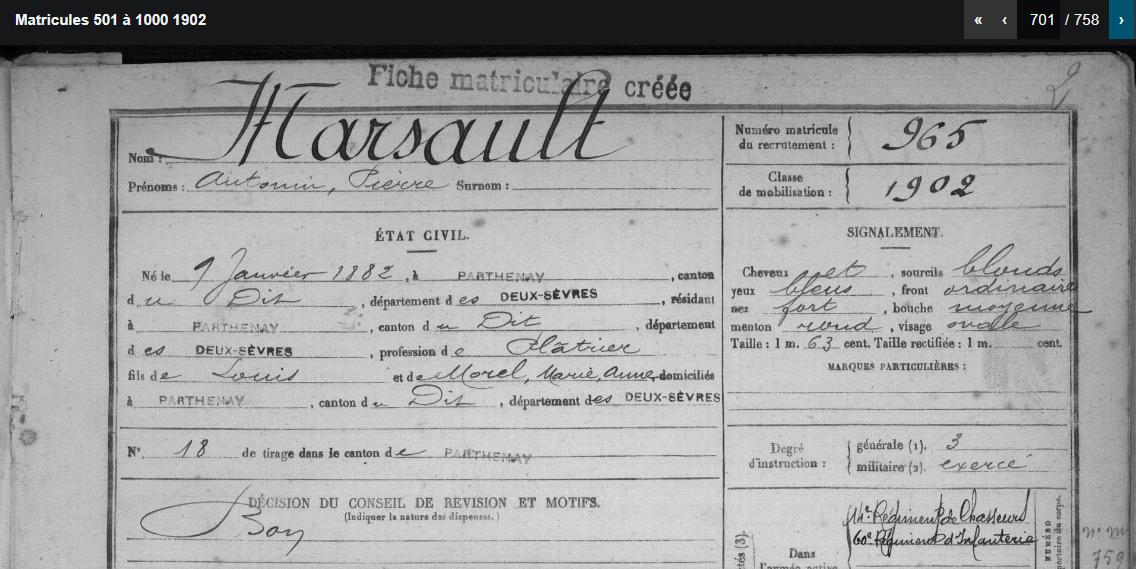 Matricules 501 à 1000 1902
« ‹ 701 / 758 ›
Fiche matriculaire créée
2
Nom : Marsault
Prénoms : Antonin, Pierre Surnom :
Numéro matricule du recrutement : 965
Classe de mobilisation : 1902
ÉTAT CIVIL.
Né le 9 Janvier 1882, à PARTHENAY, canton
du Dit, département des DEUX-SÈVRES, résidant
à PARTHENAY, canton du Dit, département
des DEUX-SÈVRES, profession de Plâtrier
fils de Louis et de Morel, Marie, Anne, domiciliés
à PARTHENAY, canton du Dit, département des DEUX-SÈVRES
N° 18 de tirage dans le canton de PARTHENAY
DÉCISION DU CONSEIL DE REVISION ET MOTIFS.
(Indiquer la nature des dispenses.)
Bon
SIGNALEMENT.
Cheveux et, sourcils blonds
yeux bleus, front ordinaire
nez fort, bouche moyenne
menton rond, visage ovale
Taille : 1 m. 63 cent. Taille rectifiée : 1 m. cent.
MARQUES PARTICULIÈRES :
Degré d'instruction :
générale (1). 3
militaire (2). exercé
Dans
l'armée active
14e Régiment de Chasseurs
60e Régiment d'Infanterie
NUMÉRO
répertoire du corps.
759